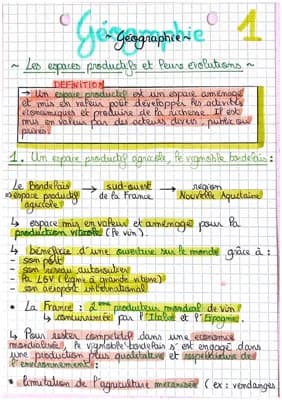 Géographie 1
~ Géographie ~
~ Les espaces productifs et leurs évolutions ~
DEFINITION
→ Un espace productif est un espace aménagé
et mis en valeur pour développer les activités
économiques et produire de la richesse. Il est
mis en valeur par des acteurs divers, publics ou
privés.
1. Un espace productif agricole, le vignoble bordelais :
Le Bordelais → sud-ouest → région
= espace productif de la France Nouvelle Aquitaine
agricole
↳ espace mis en valeur et aménagé pour la
production viticole (le vin).
↳ bénéficie d'une ouverture sur le monde grâce à :
- son port
- son réseau autoroutier
- la LGV (ligne à grande vitesse)
- son aéroport international
• La France : 2ème producteur mondial de vin
↳ concurrencée par l'Italie et l'Espagne.
↳ Pour rester compétitif dans une économie
mondialisée, le vignoble bordelais s'est engagé dans
une production plus qualitative et respectueuse de
l'environnement :
• limitation de l'agriculture mécanisée (ex : vendanges